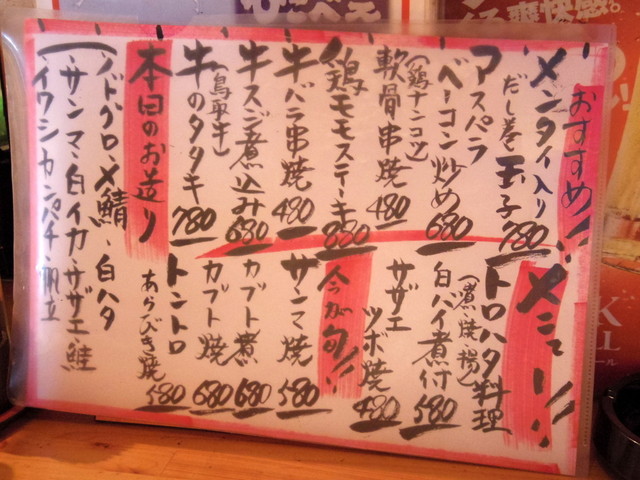 おすすめ!!
メンタイ入り
だし巻玉子 780
アスパラ
ベーコン炒め 680
(鶏ナンコツ)
軟骨串焼 480
鶏モモステーキ 880
牛バラ串焼 480
牛スジ煮込み 680
(鳥取牛)
牛のタタキ 780
本日のお造り
ノドグロ・〆鯖・白ハタ
サンマ・白イカ・サザエ・鮭
イワシ・カンパチ・帆立
メニュー!!
トロハタ料理
(煮・焼・揚)
白ハイ煮付 580
サザエ
ツボ焼 480
今が旬!!
サンマ焼 580
カブト煮 680
カブト焼 680
トントロ
あらびき焼 580
爽快感。